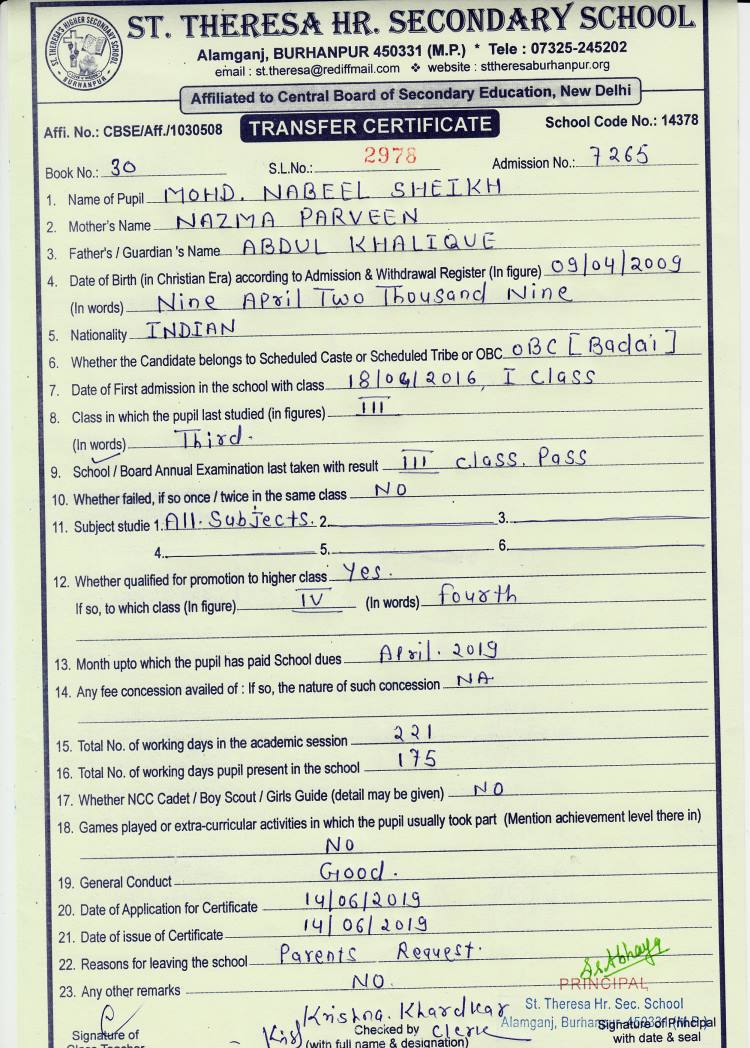 ST. THERESA HR. SECONDARY SCHOOL
ST. THERESA'S HIGHER SECONDARY SCHOOL BURHANPUR
Alamganj, BURHANPUR 450331 (M.P.) * Tele : 07325-245202
email : st.theresa@rediffmail.com ❖ website : sttheresaburhanpur.org
Affiliated to Central Board of Secondary Education, New Delhi
Affi. No.: CBSE/Aff./1030508 TRANSFER CERTIFICATE School Code No.: 14378
Book No.: 30 S.L.No.: 2978 Admission No.: 7265
1. Name of Pupil MOHD. NABEEL SHEIKH
2. Mother's Name NAZMA PARVEEN
3. Father's / Guardian 's Name ABDUL KHALIQUE
4. Date of Birth (in Christian Era) according to Admission & Withdrawal Register (In figure) 09/04/2009
(In words) Nine April Two Thousand Nine
5. Nationality INDIAN
6. Whether the Candidate belongs to Scheduled Caste or Scheduled Tribe or OBC OBC [Badai]
7. Date of First admission in the school with class 18/04/2016, I Class
8. Class in which the pupil last studied (in figures) III
(In words) Third.
9. School / Board Annual Examination last taken with result III class. Pass
10. Whether failed, if so once / twice in the same class NO
11. Subject studie 1. All. Subjects. 2. 3.
4. 5. 6.
12. Whether qualified for promotion to higher class Yes.
If so, to which class (In figure) IV (In words) fourth
13. Month upto which the pupil has paid School dues April. 2019
14. Any fee concession availed of : If so, the nature of such concession NA
15. Total No. of working days in the academic session 221
16. Total No. of working days pupil present in the school 175
17. Whether NCC Cadet / Boy Scout / Girls Guide (detail may be given) NO
18. Games played or extra-curricular activities in which the pupil usually took part (Mention achievement level there in)
NO
19. General Conduct Good.
20. Date of Application for Certificate 14/06/2019
21. Date of issue of Certificate 14/06/2019
22. Reasons for leaving the school Parents Request.
23. Any other remarks NO.
Sr. Abhaya
PRINCIPAL
St. Theresa Hr. Sec. School
Alamganj, Burhanpur-450331 (M.P.)
Krishna. Khardkar
Signature of Checked by Clerk Signature of Principal
Class Teacher (with full name & designation) with date & seal